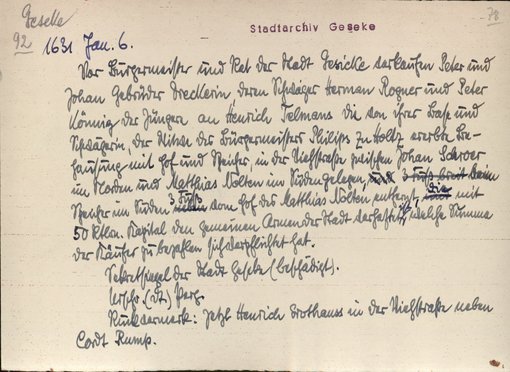 Geseke
78
92
Stadtarchiv Geseke
1631 Jan. 6.
Vor Bürgermeister und Rat der Stadt Gesicke verkaufen Peter und
Johan Gebrüder Dreckerin deren Schwäger Herman Rogner und Peter
Könnig der Jüngere an Henrich Telmans die von ihrer Base und
Schwägerin, der Witwe des Bürgermeisters Philips zu Holtz ererbte Be-
hausung mit Hof und Speicher in der Viehstraße zwischen Johan Schroer
im Norden und Matthias Nolten im Süden gelegen, 3 Fuß breit beim
Speicher im Süden 3 Fuß vom Hof des Matthias Nolten entfernt, die mit
50 Rtlrn. Kapital den gemeinen Armen der Stadt verhaftet ist, welche Summe
der Käufer zu bezahlen sich verpflichtet hat.
Sekretsiegel der Stadt Geseke (beschädigt).
Urschr. (dt.) Perg.
Rückvermerk: Jetzt Henrich Brothauss in der Viehstraße neben
Cordt Rump.